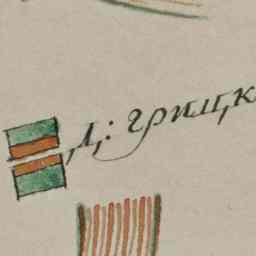 Д: грицк